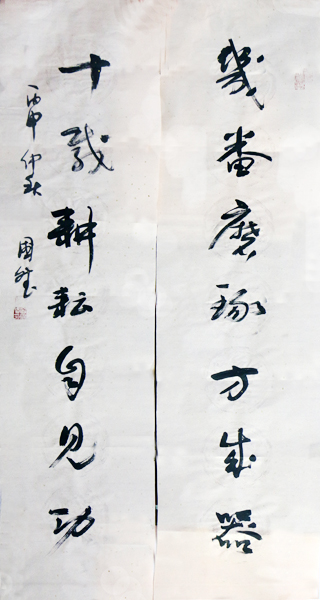 幾番磨琢方成器
十載耕耘自見功
丙申仲秋
國斌